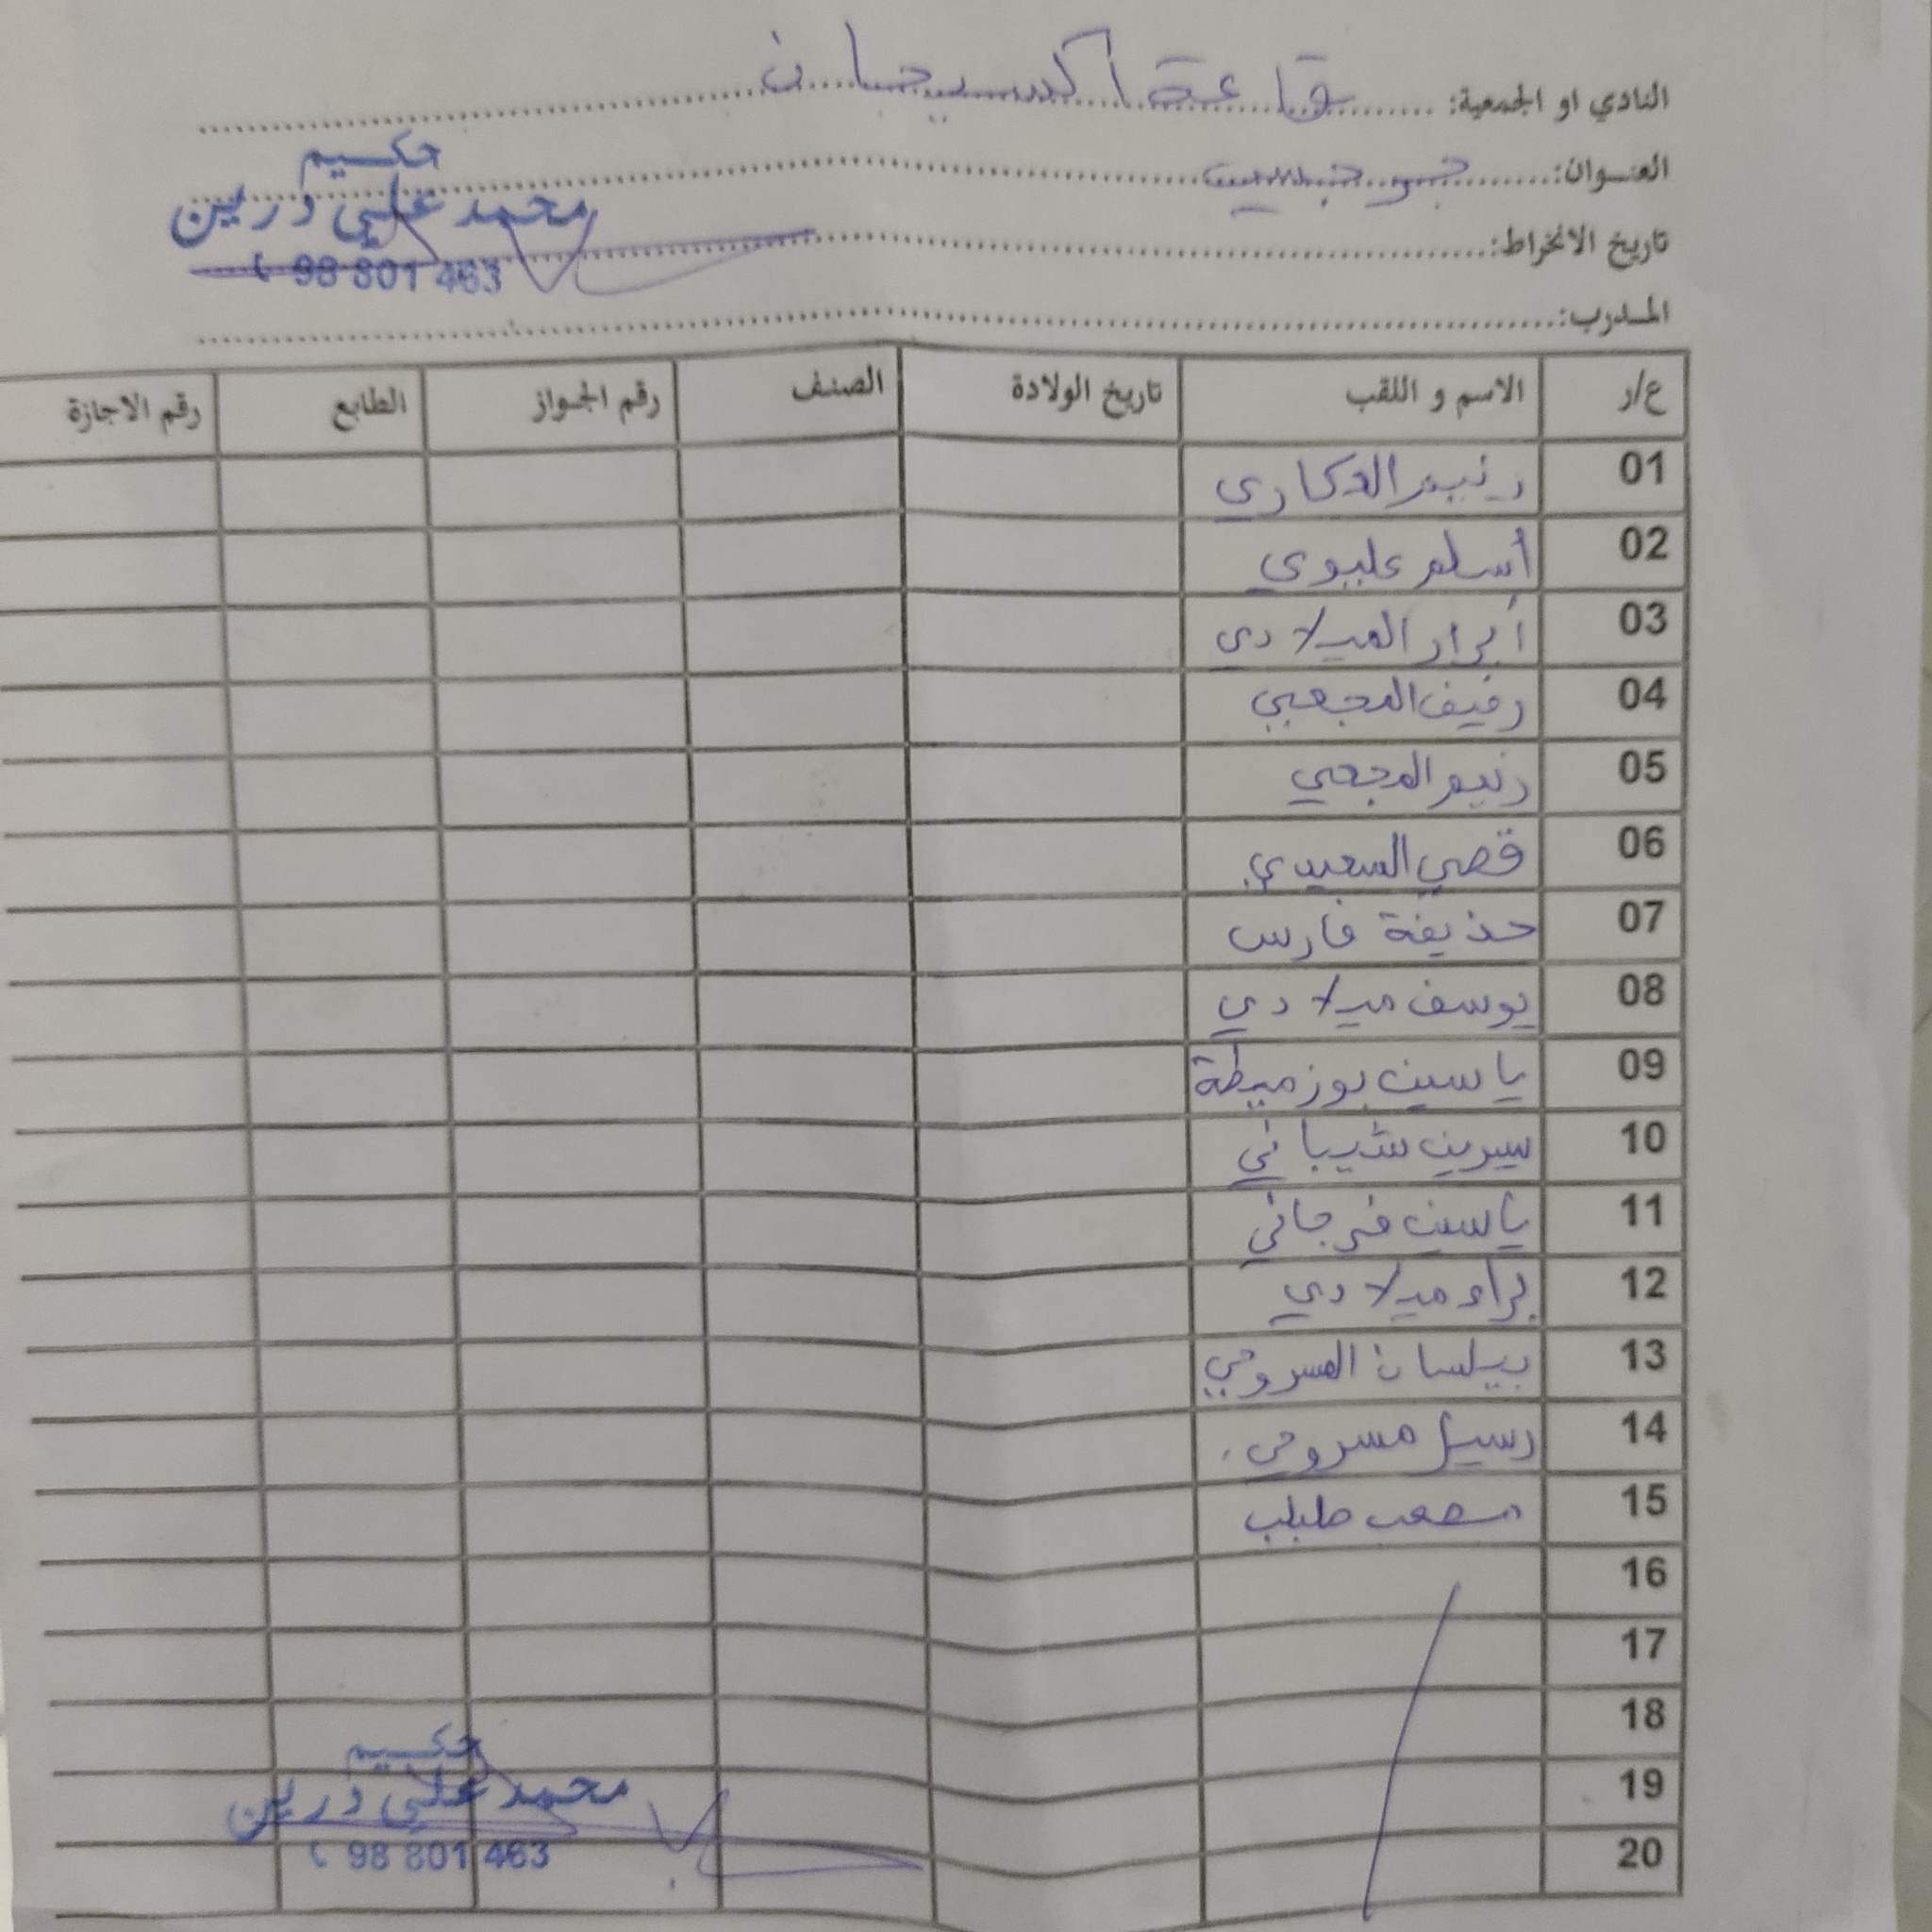 النادي او الجمعية: قاعة اكسيجان
العنوان: بوحسين
تاريخ الانخراط:
المدرب:
حكيم
محمد علي دريين
98 801 463
ع/ر الاسم و اللقب تاريخ الولادة الصنف رقم الجواز الطابع رقم الاجازة
01 رنيم الدكاري
02 أسلم عليوي
03 أبرار الميلادي
04 رفيف المجعبي
05 رنيم المجعي
06 قصي السعيدي
07 حذيفة فارس
08 يوسف ميلادي
09 ياسين بوزميطة
10 سيرين شيباني
11 ياسين فرجاني
12 براء ميلادي
13 بيلسان المسروحي
14 رسيل مسروحي
15 مصعب طبلب
16
17
18
19
20
حكيم
محمد علي دريين
98 801 463